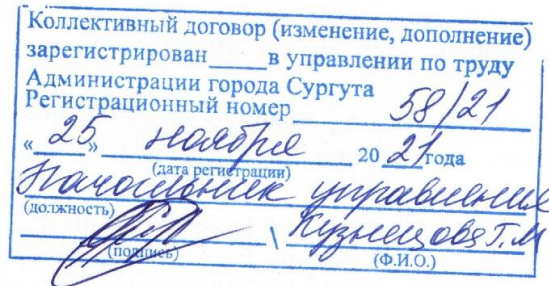 Коллективный договор (изменение, дополнение)
зарегистрирован_____в управлении по труду
Администрации города Сургута
Регистрационный номер 58/21
«25» ноября 2021года
(дата регистрации)
Начальник управления
(должность)
\ Кузнецова Г.М
(подпись) (Ф.И.О.)